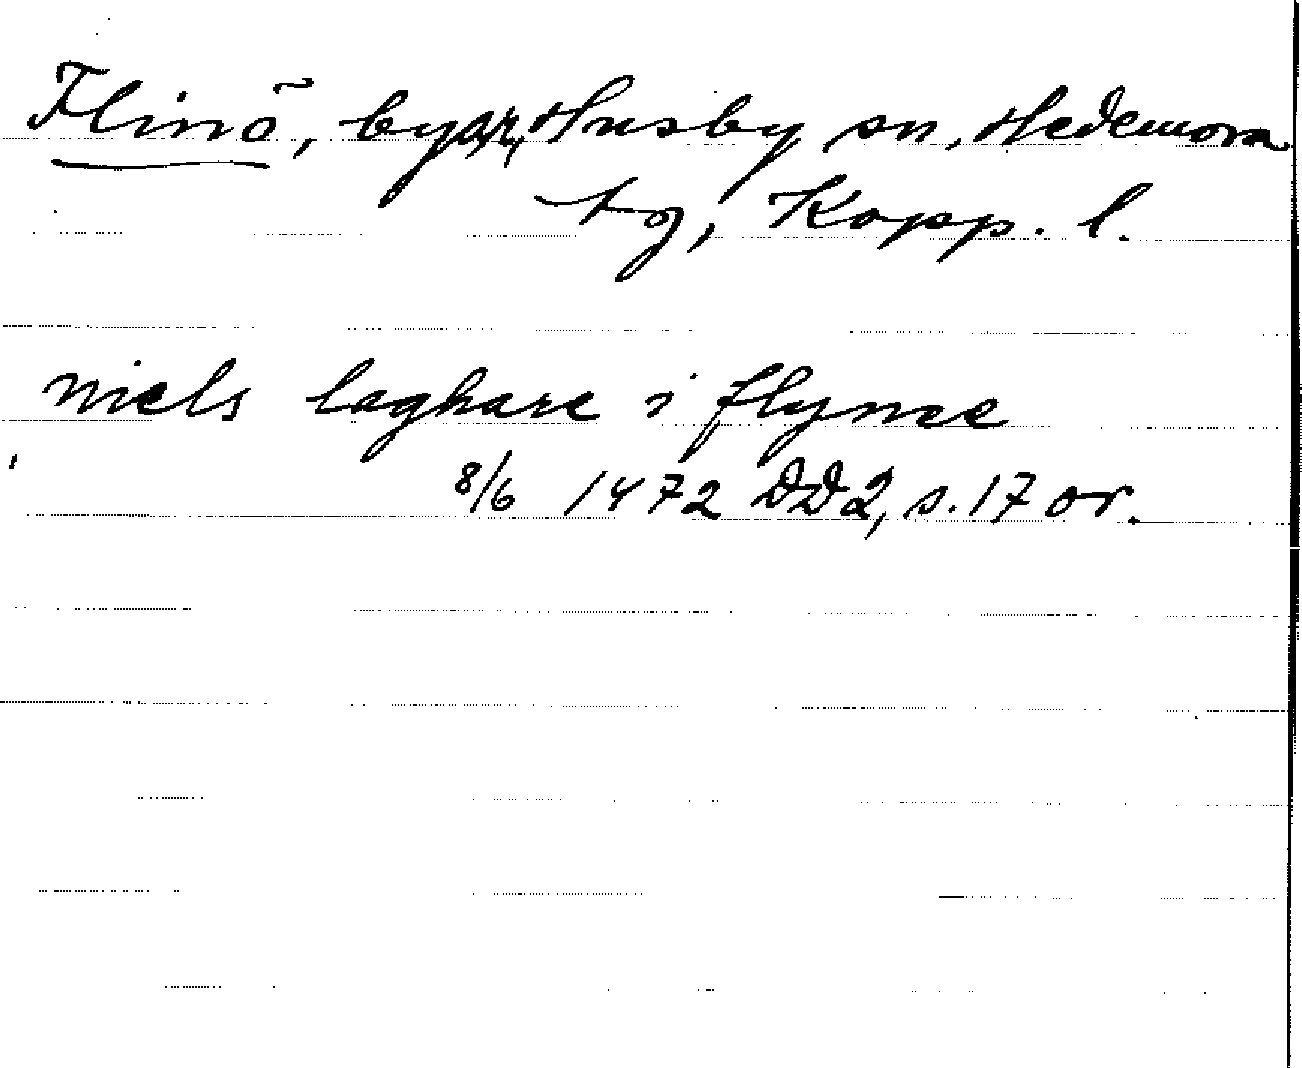 Flinö, byar, Husby sn, Hedemora
tg, Kopp. l.
niels laghare i flynne
8/6 1472 DD2, s. 17 or.